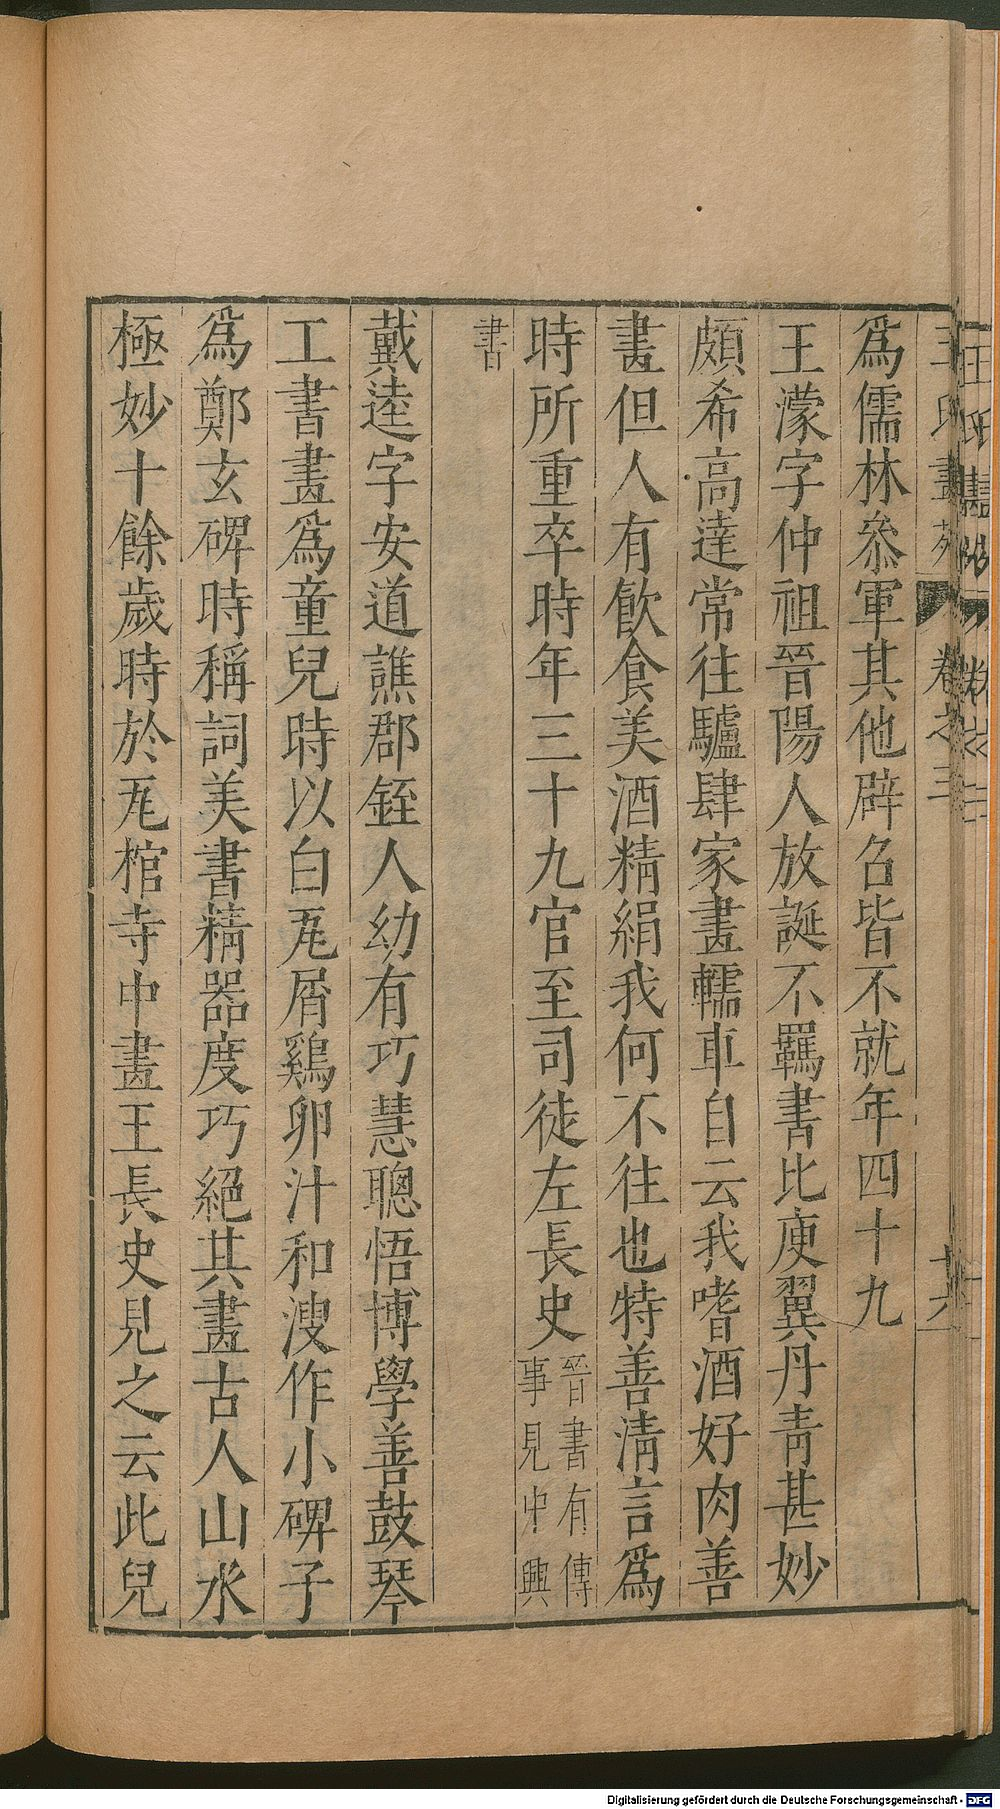 王氏畫苑 卷之三 十六
爲儒林叅軍其他辟召皆不就年四十九
王濛字仲祖晉陽人放誕不羈書比庾翼丹青甚妙
頗希高達常往驢肆家畫轜車自云我嗜酒好肉善
畫但人有飲食美酒精絹我何不往也特善清言爲
時所重卒時年三十九官至司徒左長史晉書有傳事見中興
書
戴逵字安道譙郡銍人幼有巧慧聰悟博學善鼓琴
工書畫爲童兒時以白瓦屑鷄卵汁和溲作小碑子
爲鄭玄碑時稱詞美書精器度巧絕其畫古人山水
極妙十餘歲時於瓦棺寺中畫王長史見之云此兒
Digitalisierung gefördert durch die Deutsche Forschungsgemeinschaft - DFG